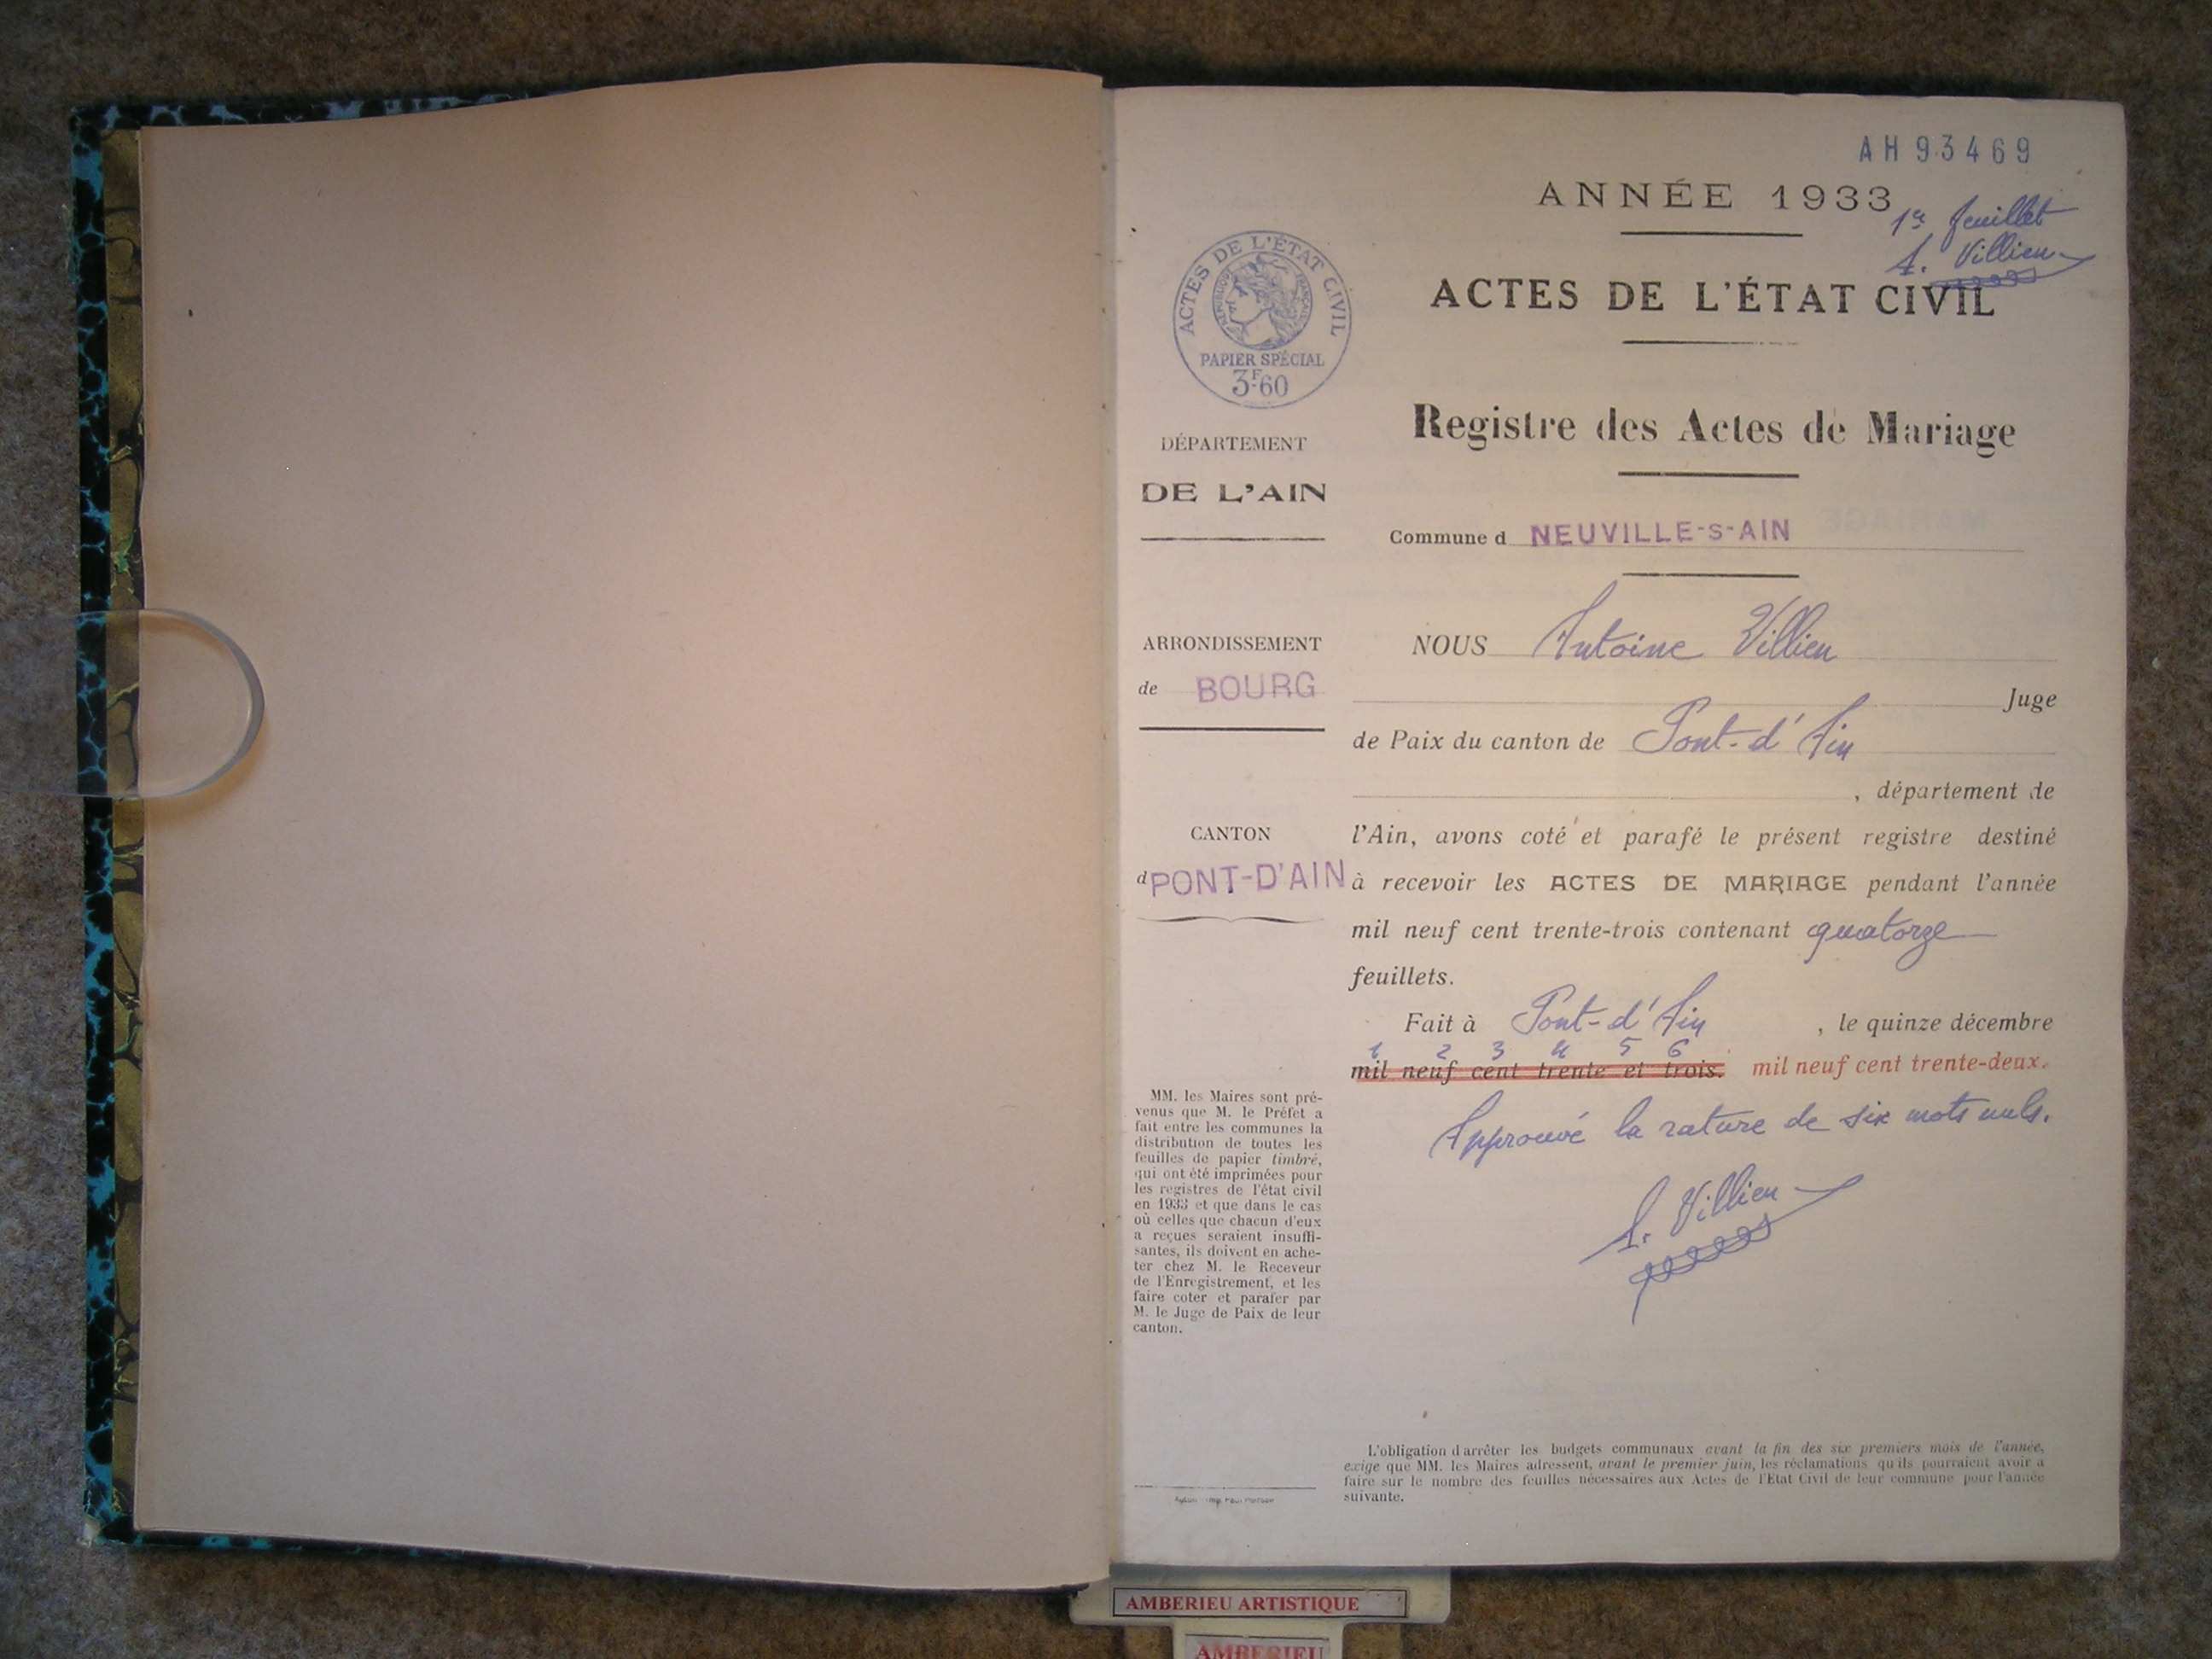 AH 93469
ANNÉE 1933
1er feuillet
A. Villien
ACTES DE L'ÉTAT CIVIL
ACTES DE L'ÉTAT CIVIL
RÉPUBLIQUE FRANÇAISE
PAPIER SPÉCIAL
3F60
Registre des Actes de Mariage
DÉPARTEMENT
DE L'AIN
Commune d NEUVILLE-S-AIN
ARRONDISSEMENT
de BOURG
CANTON
d PONT-D'AIN
NOUS Antoine Villien
Juge
de Paix du canton de Pont-d'Ain
, département de
l'Ain, avons coté et parafé le présent registre destiné
à recevoir les ACTES DE MARIAGE pendant l'année
mil neuf cent trente-trois contenant quatorze
feuillets.
Fait à Pont-d'Ain , le quinze décembre
1 2 3 4 5 6
mil neuf cent trente et trois. mil neuf cent trente-deux.
Approuvé la rature de six mots nuls.
A. Villien
MM. les Maires sont pré-
venus que M. le Préfet a
fait entre les communes la
distribution de toutes les
feuilles de papier timbré,
qui ont été imprimées pour
les registres de l'état civil
en 1933 et que dans le cas
où celles que chacun d'eux
a reçues seraient insuffi-
santes, ils doivent en ache-
ter chez M. le Receveur
de l'Enregistrement, et les
faire coter et parafer par
M. le Juge de Paix de leur
canton.
L'obligation d'arrêter les budgets communaux avant la fin des six premiers mois de l'année,
exige que MM. les Maires adressent, avant le premier juin, les réclamations qu'ils pourraient avoir à
faire sur le nombre des feuilles nécessaires aux Actes de l'Etat Civil de leur commune pour l'année
suivante.
AMBERIEU ARTISTIQUE
AMBERIEU